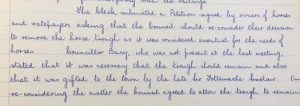 The Clerk submitted a Petition signed by owners of horses
and ratepayers asking that the Council should re-consider their decision
to remove the horse trough as it was considered essential for the needs of
horses. Councillor Casey, who was not present at the last meeting,
stated that it was necessary that the trough should remain and also
that it was gifted to the town by the late Sir Hollemache Sinclair. On
re-considering the matter the Council agreed to allow the trough to remain